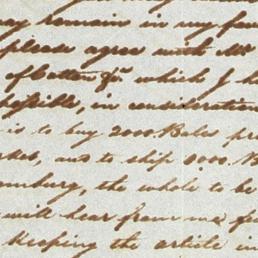 may remain in my fa
please agree with
of Cotton which I h
possible, in consideration
is to buy 2000 Bales pr
ket, and to ship 1000 B
mburg, the whole to be
will hear from me f
keeping the article in